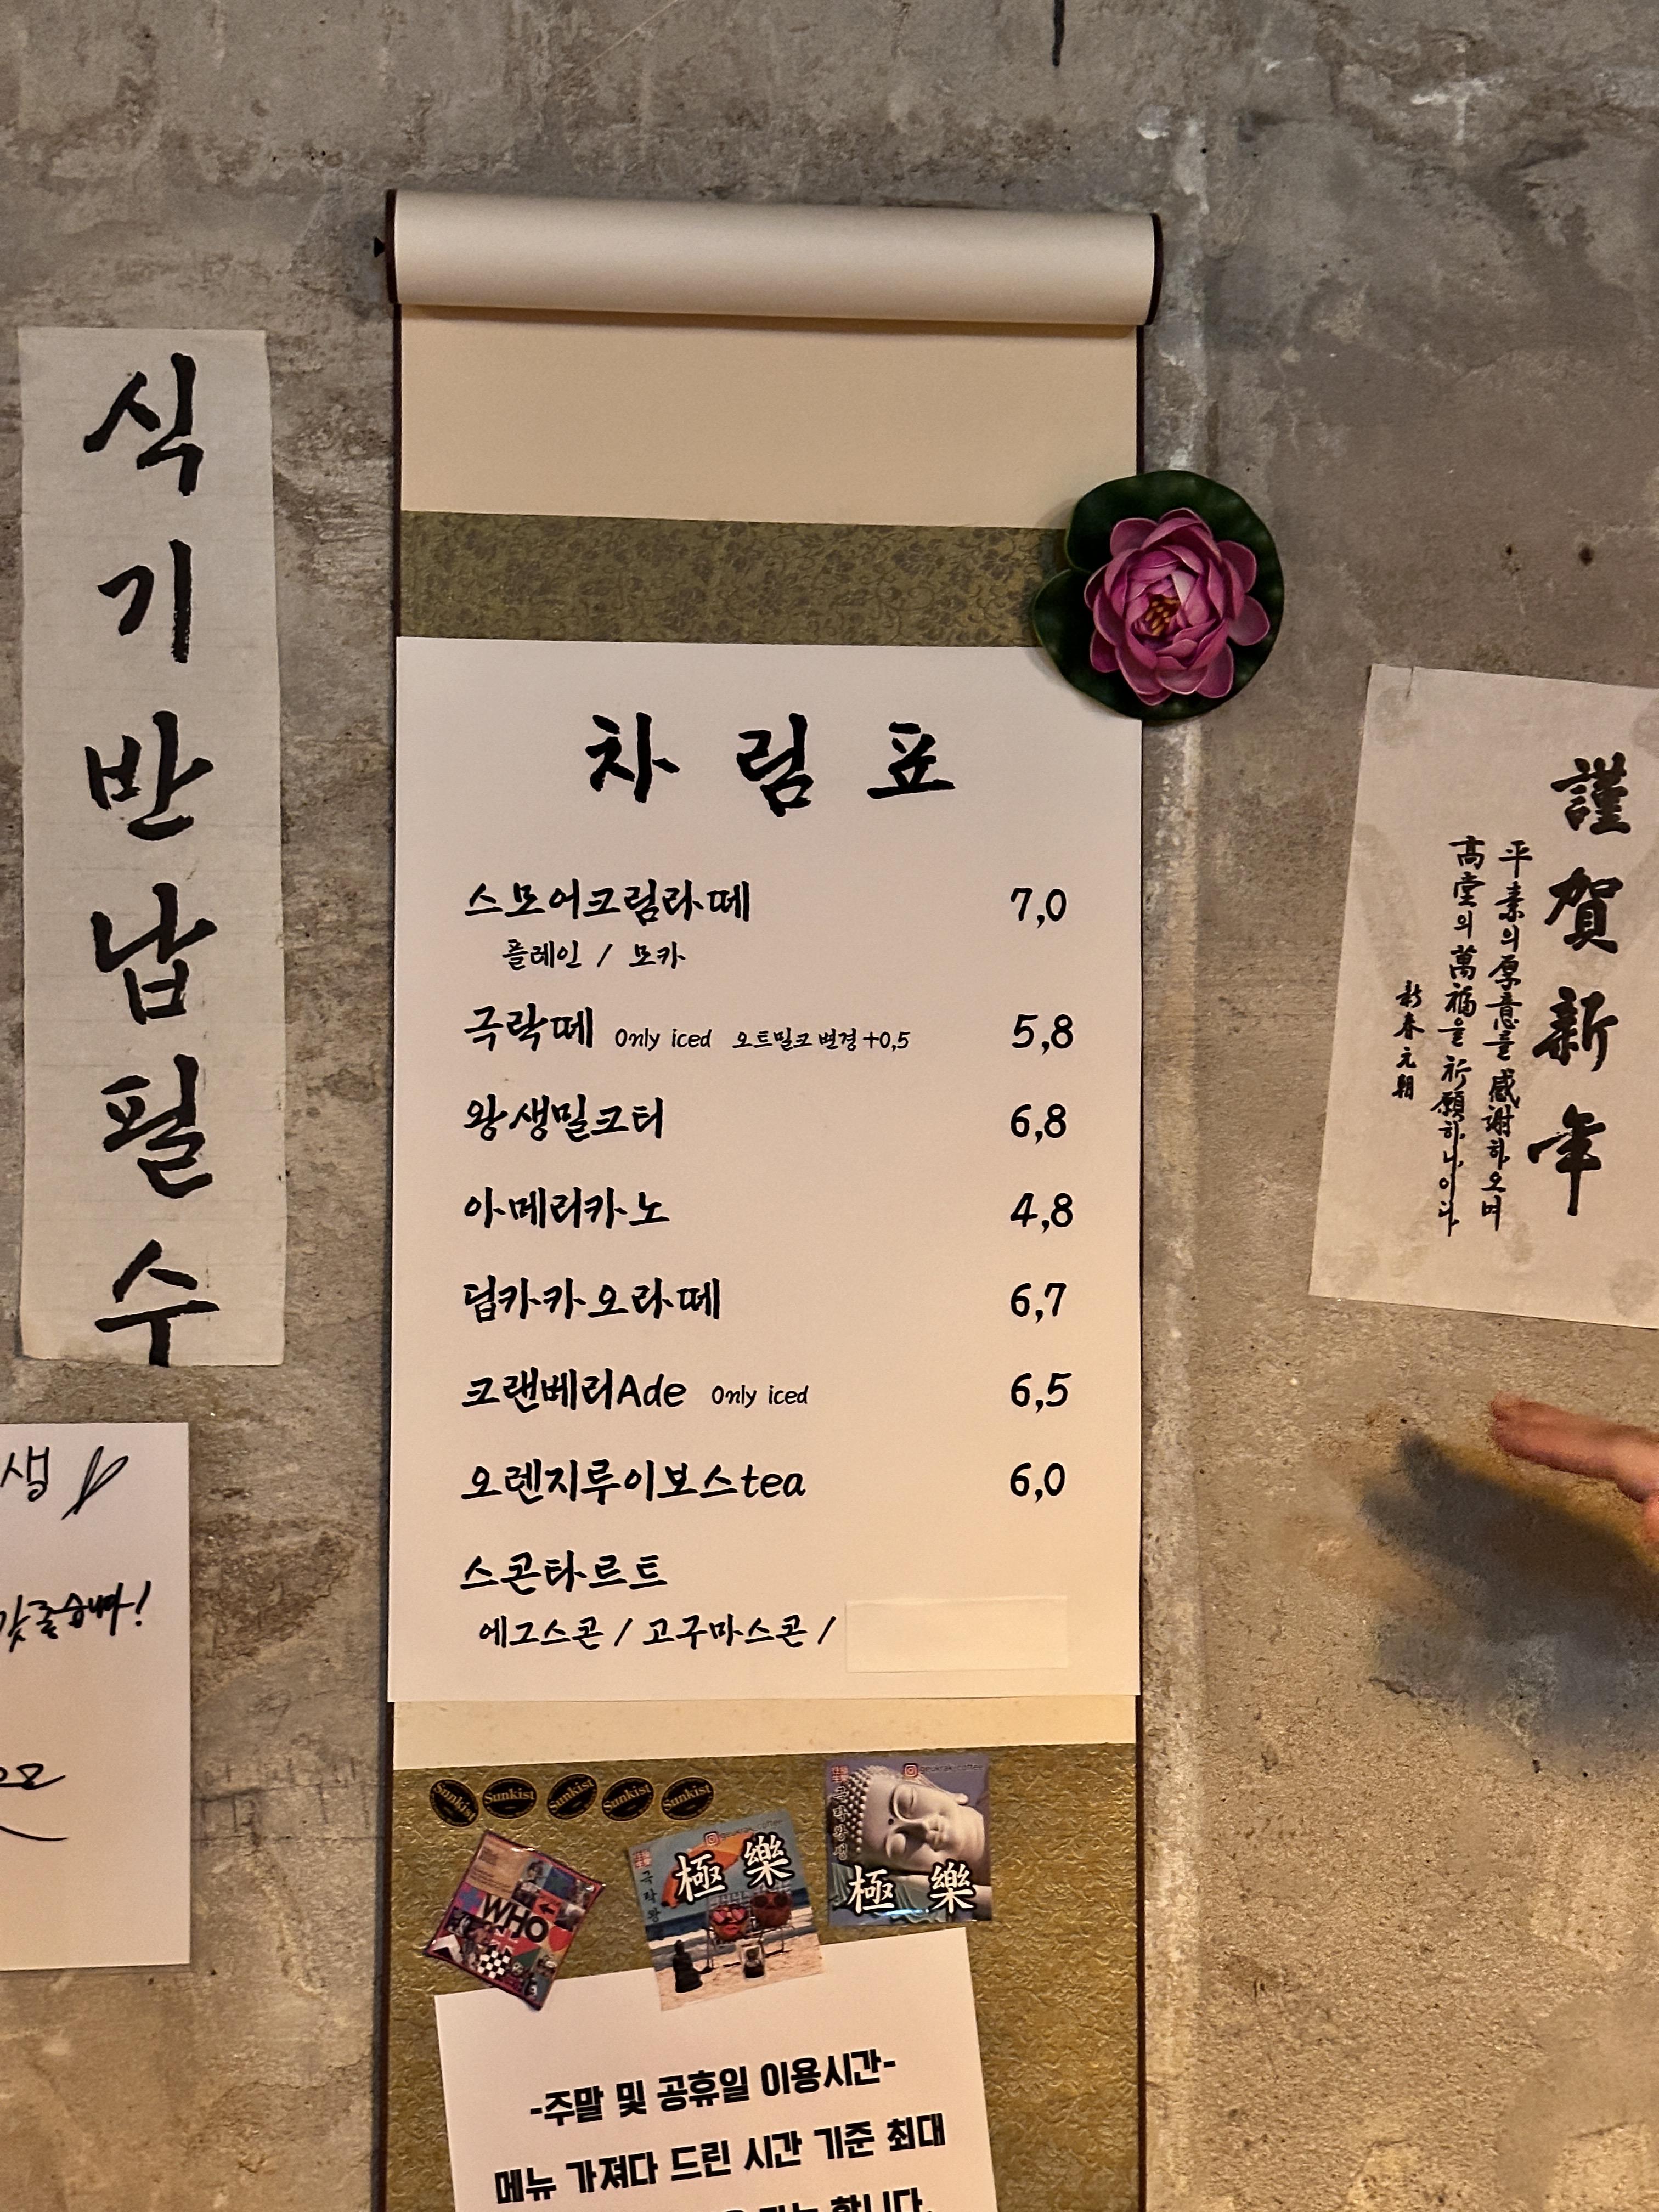 식기반납필수
차림표
스모어크림라떼 7,0
플레인 / 모카
극락떼 Only iced 오트밀크 변경 +0,5 5,8
왕생밀크티 6,8
아메리카노 4,8
딥카카오라떼 6,7
크랜베리Ade Only iced 6,5
오렌지루이보스tea 6,0
스콘타르트
에그스콘 / 고구마스콘 /
謹賀新年
平素의 厚意를 感謝하오며
高堂의 萬福을 祈願하나이다
新春元朝
생
Sunkist Sunkist Sunkist Sunkist Sunkist
WHO
極樂
극락왕
極樂
극락왕생
-주말 및 공휴일 이용시간-
메뉴 가져다 드린 시간 기준 최대
합니다.